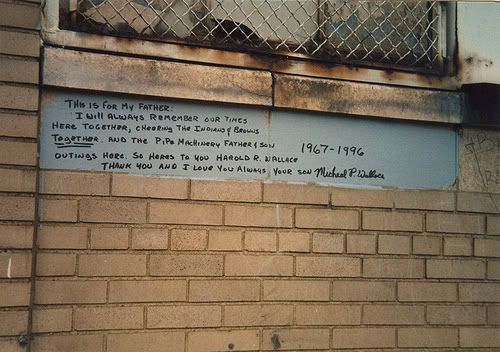 THIS IS FOR MY FATHER:
I WILL ALWAYS REMEMBER OUR TIMES
HERE TOGETHER, CHEERING THE INDIANS & BROWNS
TOGETHER. AND THE PIPE MACHINERY FATHER & SON
OUTINGS HERE. SO HERES TO YOU HAROLD R. WALLACE
THANK YOU AND I LOVE YOU ALWAYS, YOUR SON Micheal P. Wallace
1967-1996